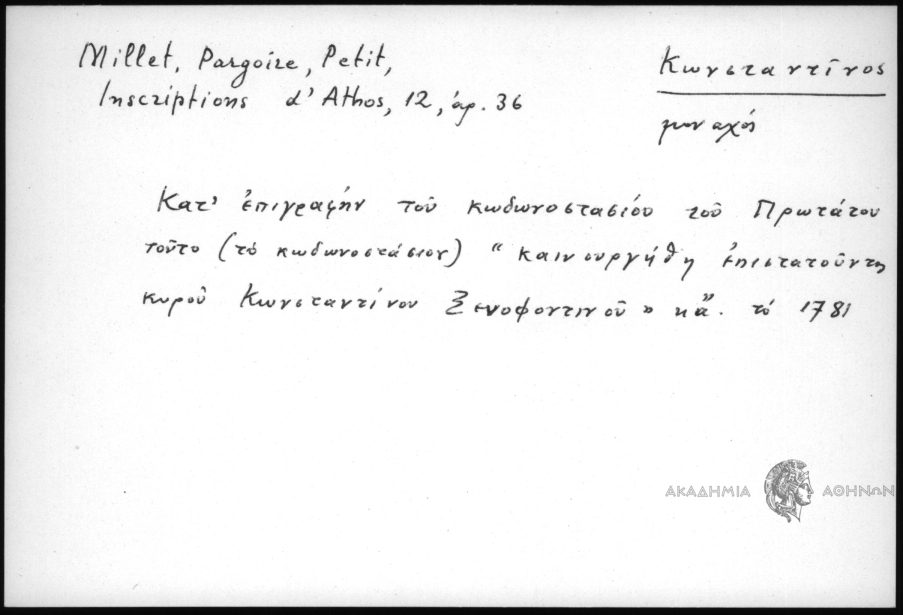 Millet, Pargoire, Petit,
Inscriptions d'Athos, 12, ἀρ. 36
Κωνσταντῖνος
μοναχός
Κατ' ἐπιγραφὴν τοῦ κωδωνοστασίου τοῦ Πρωτάτου
τοῦτο (τὸ κωδωνοστάσιον) “καινουργήθη ἐπιστατοῦντος
κυροῦ Κωνσταντίνου Ξενοφοντινοῦ” κἄ. τὸ 1781
ΑΚΑΔΗΜΙΑ ΑΘΗΝΩΝ